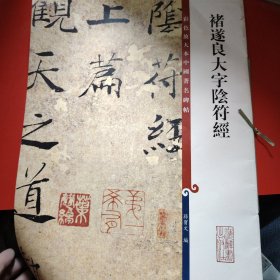 褚遂良大字陰符經
彩色放大本中國著名碑帖
孫寶文 編
陰符經
上篇
觀天之道